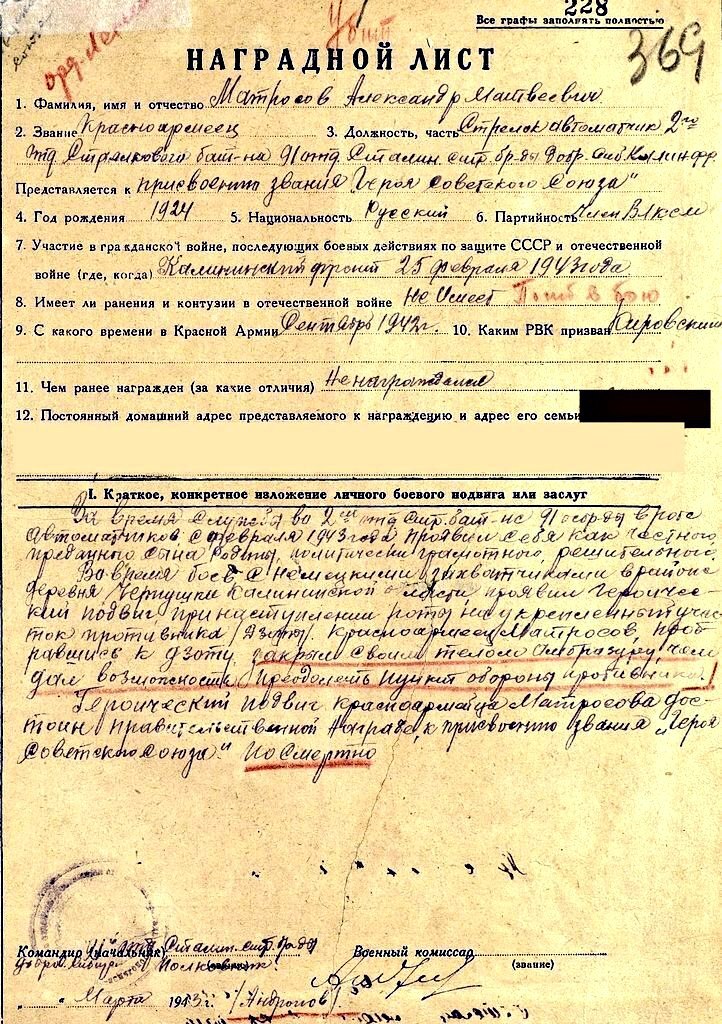 228
Все графы заполнять полностью
убит
369
НАГРАДНОЙ ЛИСТ
1. Фамилия, имя и отчество Матросов Александр Матвеевич
2. Звание Красноармеец 3. Должность, часть Стрелок автоматчик 2го
отд Стрелкового бат-на 91 отд Сталин. стр. бр-ды добр. Сиб Калин фр.
Представляется к присвоению звания Героя советского Союза"
4. Год рождения 1924 5. Национальность Русский 6. Партийность Член ВЛКСМ
7. Участие в гражданской войне, последующих боевых действиях по защите СССР и отечественной
войне (где, когда) Калининский фронт 25 февраля 1943 года
8. Имеет ли ранения и контузии в отечественной войне Не имеет Погиб в бою
9. С какого времени в Красной Армии Сентябрь 1942 г. 10. Каким РВК призван Кировским
11. Чем ранее награжден (за какие отличия) Не награждался
12. Постоянный домашний адрес представляемого к награждению и адрес его семьи
I. Краткое, конкретное изложение личного боевого подвига или заслуг
За время службы во 2ом отд стр. бат-не 91 бр-ды в роте
автоматчиков с февраля 1943 года проявил себя как честного
преданного сына Родины, политически грамотного, решительного
Во время боев с немецкими захватчиками в районе
деревня Чернушки Калининской области проявил героичес-
кий подвиг при наступлении роты на укрепленный учас-
ток противника (Дзоты). Красноармеец Матросов, проб-
равшись к дзоту закрыл своим телом амбразуру, чем
дал возможность преодолеть пункт обороны противника.
Героический подвиг красноармейца Матросова дос-
тоин правительственной награде, к присвоению звания „Героя
Советского Союза." Посмертно
Командир (начальник) отд Сталин. стр. бр-ды Военный комиссар
Полковник (звание) (звание)
" " Марта 1943 г. /Андронов/